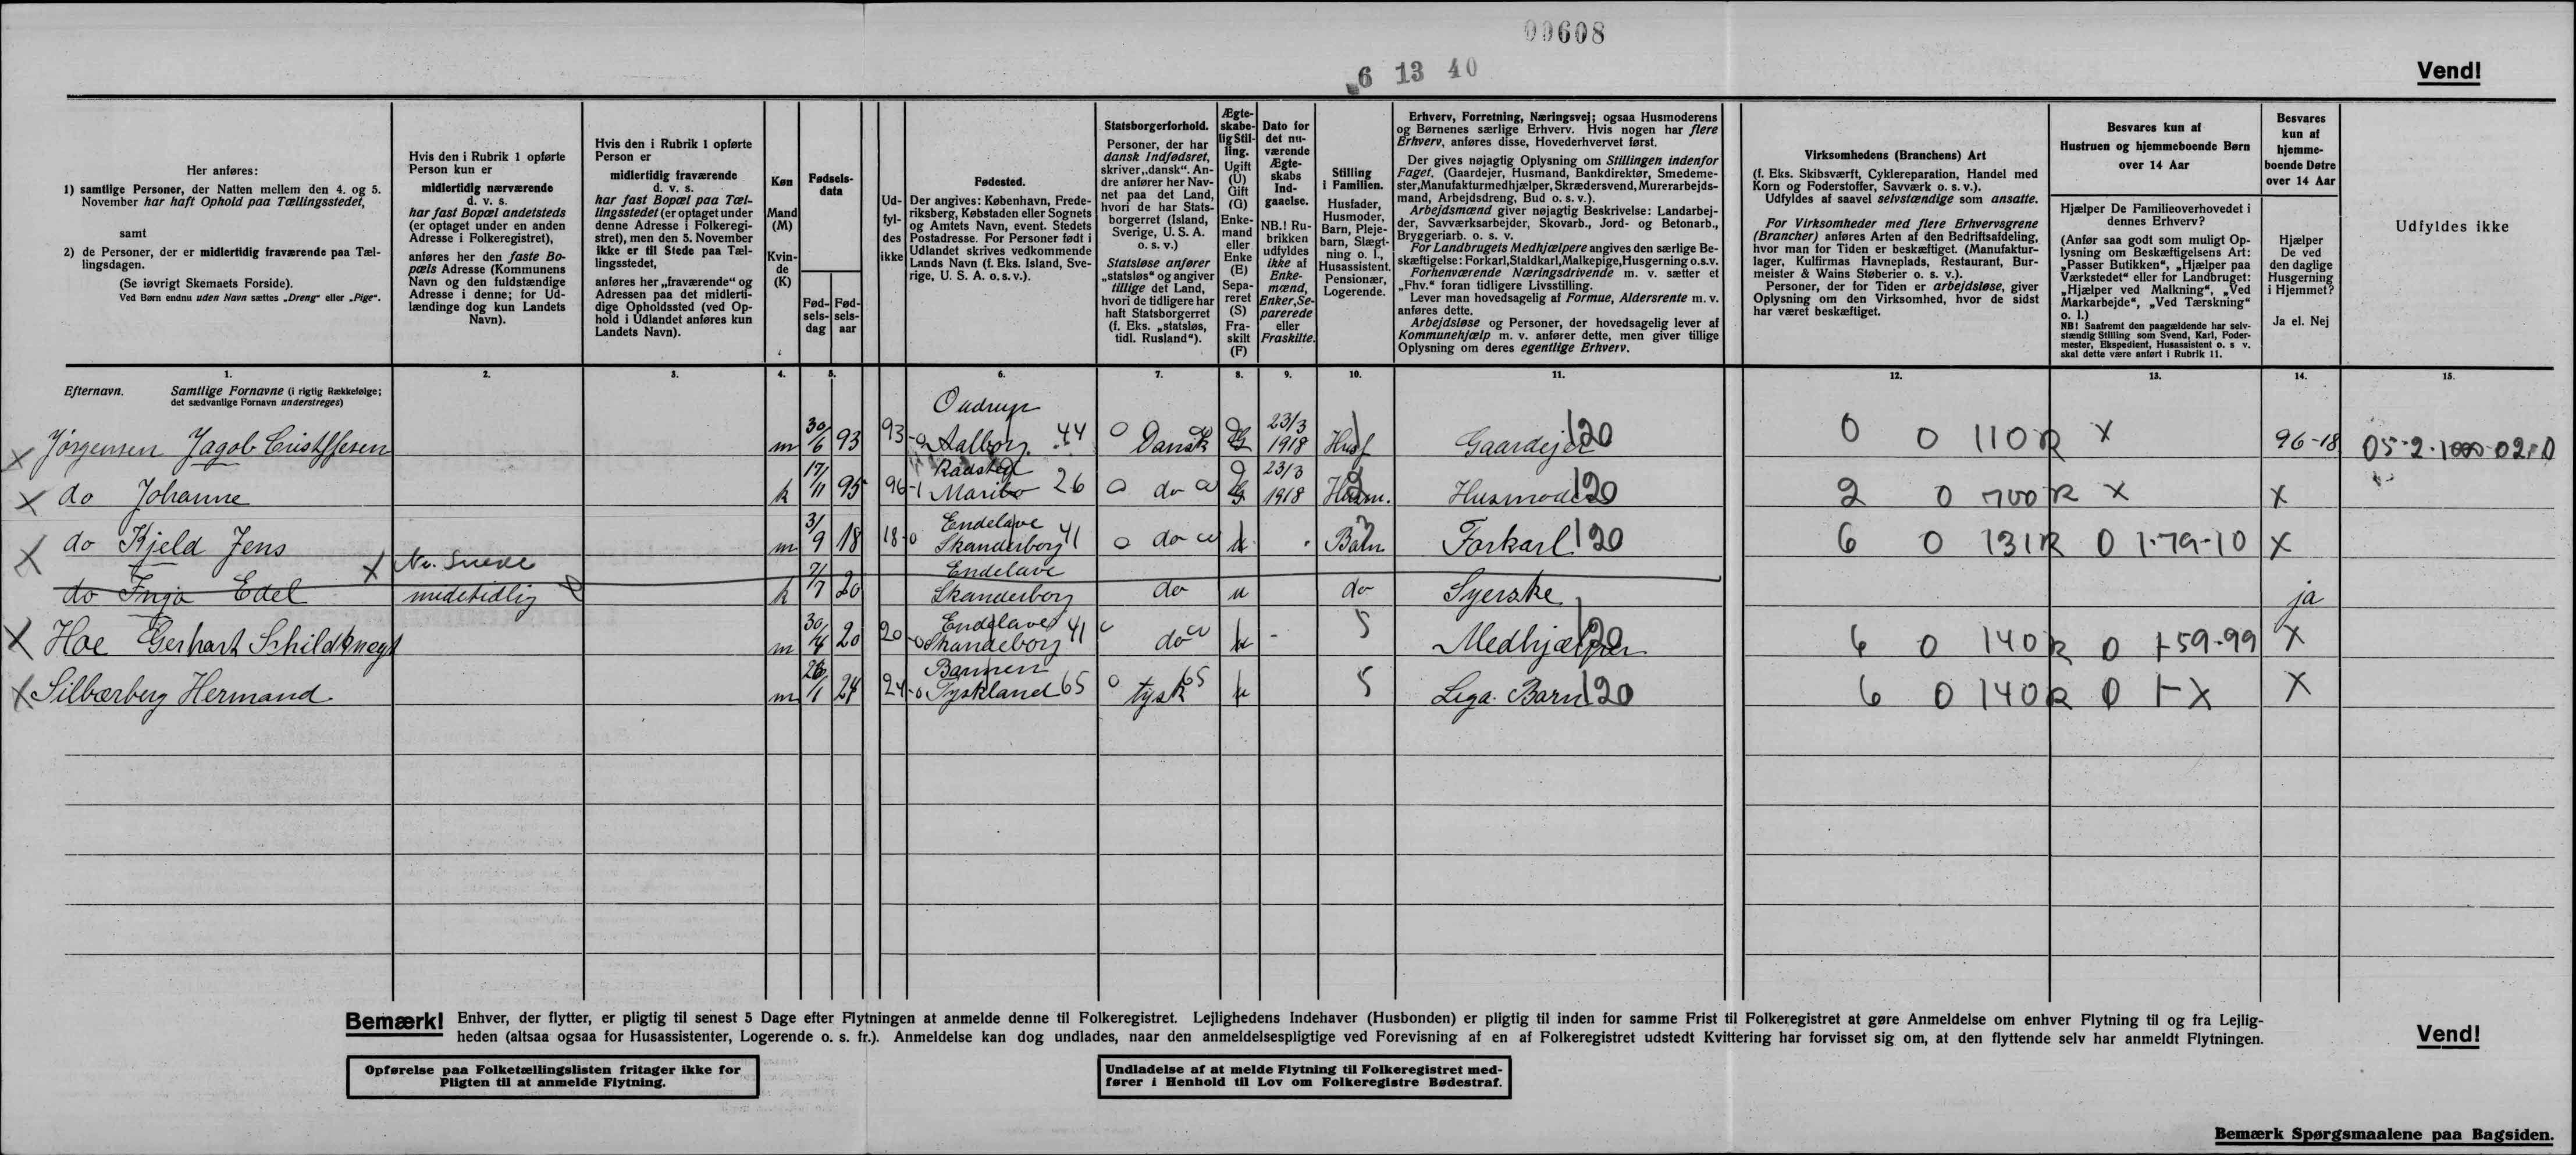 00608
6 13 40
Vend!
Her anføres:
1) samtlige Personer, der Natten mellem den 4. og 5.
November har haft Ophold paa Tællingsstedet,
samt
2) de Personer, der er midlertidig fraværende paa Tæl-
lingsdagen.
(Se iøvrigt Skemaets Forside).
Ved Børn endnu uden Navn sættes „Dreng“ eller „Pige“.
Hvis den i Rubrik 1 opførte
Person kun er
midlertidig nærværende
d. v. s.
har fast Bopæl andetsteds
(er optaget under en anden
Adresse i Folkeregistret),
anføres her den faste Bo-
pæls Adresse (Kommunens
Navn og den fuldstændige
Adresse i denne; for Ud-
lændinge dog kun Landets
Navn).
Hvis den i Rubrik 1 opførte
Person er
midlertidig fraværende
d. v. s.
har fast Bopæl paa Tæl-
lingsstedet (er optaget under
denne Adresse i Folkeregi-
stret), men den 5. November
ikke er til Stede paa Tæl-
lingsstedet,
anføres her „fraværende“ og
Adressen paa det midlerti-
dige Opholdssted (ved Op-
hold i Udlandet anføres kun
Landets Navn).
Køn
Mand
(M)
Kvin-
de
(K)
Fødsels-
data
Fød-
sels-
dag
Fød-
sels-
aar
Ud-
fyl-
des
ikke
Fødested.
Der angives: København, Frede-
riksberg, Købstaden eller Sognets
og Amtets Navn, event. Stedets
Postadresse. For Personer født i
Udlandet skrives vedkommende
Lands Navn (f. Eks. Island, Sve-
rige, U. S. A. o. s. v.).
Statsborgerforhold.
Personer, der har
dansk Indfødsret,
skriver „dansk“. An-
dre anfører her Nav-
net paa det Land,
hvori de har Stats-
borgerret (Island,
Sverige, U. S. A.
o. s. v.)
Statsløse anfører
„statsløs“ og angiver
tillige det Land,
hvori de tidligere har
haft Statsborgerret
(f. Eks. „statsløs,
tidl. Rusland“).
Ægte-
skabe-
lig Stil-
ling.
Ugift
(U)
Gift
(G)
Enke-
mand
eller
Enke
(E)
Sepa-
reret
(S)
Fra-
skilt
(F)
Dato for
det nu-
værende
Ægte-
skabs
Ind-
gaaelse.
NB.! Ru-
brikken
udfyldes
ikke af
Enke-
mænd,
Enker, Se-
parerede
eller
Fraskilte.
Stilling
i Familien.
Husfader,
Husmoder,
Barn, Pleje-
barn, Slægt-
ning o. l.,
Husassistent,
Pensionær,
Logerende.
Erhverv, Forretning, Næringsvej; ogsaa Husmoderens
og Børnenes særlige Erhverv. Hvis nogen har flere
Erhverv, anføres disse, Hovederhvervet først.
Der gives nøjagtig Oplysning om Stillingen indenfor
Faget. (Gaardejer, Husmand, Bankdirektør, Smedeme-
ster, Manufakturmedhjælper, Skrædersvend, Murerarbejds-
mand, Arbejdsdreng, Bud o. s. v.).
Arbejdsmænd giver nøjagtig Beskrivelse: Landarbej-
der, Savværksarbejder, Skovarb., Jord- og Betonarb.,
Bryggeriarb. o. s. v.
For Landbrugets Medhjælpere angives den særlige Be-
skæftigelse: Forkarl, Staldkarl, Malkepige, Husgerning o.s.v.
Forhenværende Næringsdrivende m. v. sætter et
„Fhv.“ foran tidligere Livsstilling.
Lever man hovedsagelig af Formue, Aldersrente m. v.
anføres dette.
Arbejdsløse og Personer, der hovedsagelig lever af
Kommunehjælp m. v. anfører dette, men giver tillige
Oplysning om deres egentlige Erhverv.
Virksomhedens (Branchens) Art
(f. Eks. Skibsværft, Cyklereparation, Handel med
Korn og Foderstoffer, Savværk o. s. v.).
Udfyldes af saavel selvstændige som ansatte.
For Virksomheder med flere Erhvervsgrene
(Brancher) anføres Arten af den Bedriftsafdeling,
hvor man for Tiden er beskæftiget. (Manufaktur-
lager, Kulfirmas Havneplads, Restaurant, Bur-
meister & Wains Støberier o. s. v.).
Personer, der for Tiden er arbejdsløse, giver
Oplysning om den Virksomhed, hvor de sidst
har været beskæftiget.
Besvares kun af
Hustruen og hjemmeboende Børn
over 14 Aar
Hjælper De Familieoverhovedet i
dennes Erhverv?
(Anfør saa godt som muligt Op-
lysning om Beskæftigelsens Art:
„Passer Butikken“, „Hjælper paa
Værkstedet“ eller for Landbruget:
„Hjælper ved Malkning“, „Ved
Markarbejde“, „Ved Tærskning“
o. l.)
NB! Saafremt den paagældende har selv-
stændig Stilling som Svend, Karl, Foder-
mester, Ekspedient, Husassistent o. s v.
skal dette være anført i Rubrik 11.
Besvares
kun af
hjemme-
boende Døtre
over 14 Aar
Hjælper
De ved
den daglige
Husgerning
i Hjemmet?
Ja el. Nej
Udfyldes ikke
1. 2. 3. 4. 5. 6. 7. 8. 9. 10. 11. 12. 13. 14. 15.
Efternavn. Samtlige Fornavne (i rigtig Rækkefølge;
det sædvanlige Fornavn understreges)
Oudrup
X Jørgensen Jagob Cristffesen m 30/6 93 93-0 Aalborg. 44 0 Dansk G 23/3 1918 Husf 1 Gaardejer 120 0 0 110 R X 96-18 05-2
Radsted
X do Johanne k 17/11 95 96-1 Maribo 26 0 do G 23/3 1918 Husm. 2 Husmoder 120 2 0 700 R X X
Endelave
X do Kjeld Jens m 3/9 18 18-0 Skanderborg 41 0 do u Barn Forkarl 120 6 0 131 R 0 1-79-10 X
X Nr. Snede
Endelave
do Inga Edel midetidlig k 7/7 20 Skanderborg do u do Syerske ja
Endelave
X Hoe Gerhart Schildknegt m 30/4 20 20-0 Skandeborg 41 do u - 5 Medhjælper 120 6 0 140 R 0 1-59-99 X
Barmen
X Silbærberg Hermand m 26/1 24 24-0 Tyskland 65 0 tysk 65 u 5 Barn 120 6 0 140 R 0 1-X X
Bemærk! Enhver, der flytter, er pligtig til senest 5 Dage efter Flytningen at anmelde denne til Folkeregistret. Lejlighedens Indehaver (Husbonden) er pligtig til inden for samme Frist til Folkeregistret at gøre Anmeldelse om enhver Flytning til og fra Lejlig-
heden (altsaa ogsaa for Husassistenter, Logerende o. s. fr.). Anmeldelse kan dog undlades, naar den anmeldelsespligtige ved Forevisning af en af Folkeregistret udstedt Kvittering har forvisset sig om, at den flyttende selv har anmeldt Flytningen.
Vend!
Opførelse paa Folketællingslisten fritager ikke for
Pligten til at anmelde Flytning.
Undladelse af at melde Flytning til Folkeregistret med-
fører i Henhold til Lov om Folkeregistre Bødestraf.
Bemærk Spørgsmaalene paa Bagsiden.